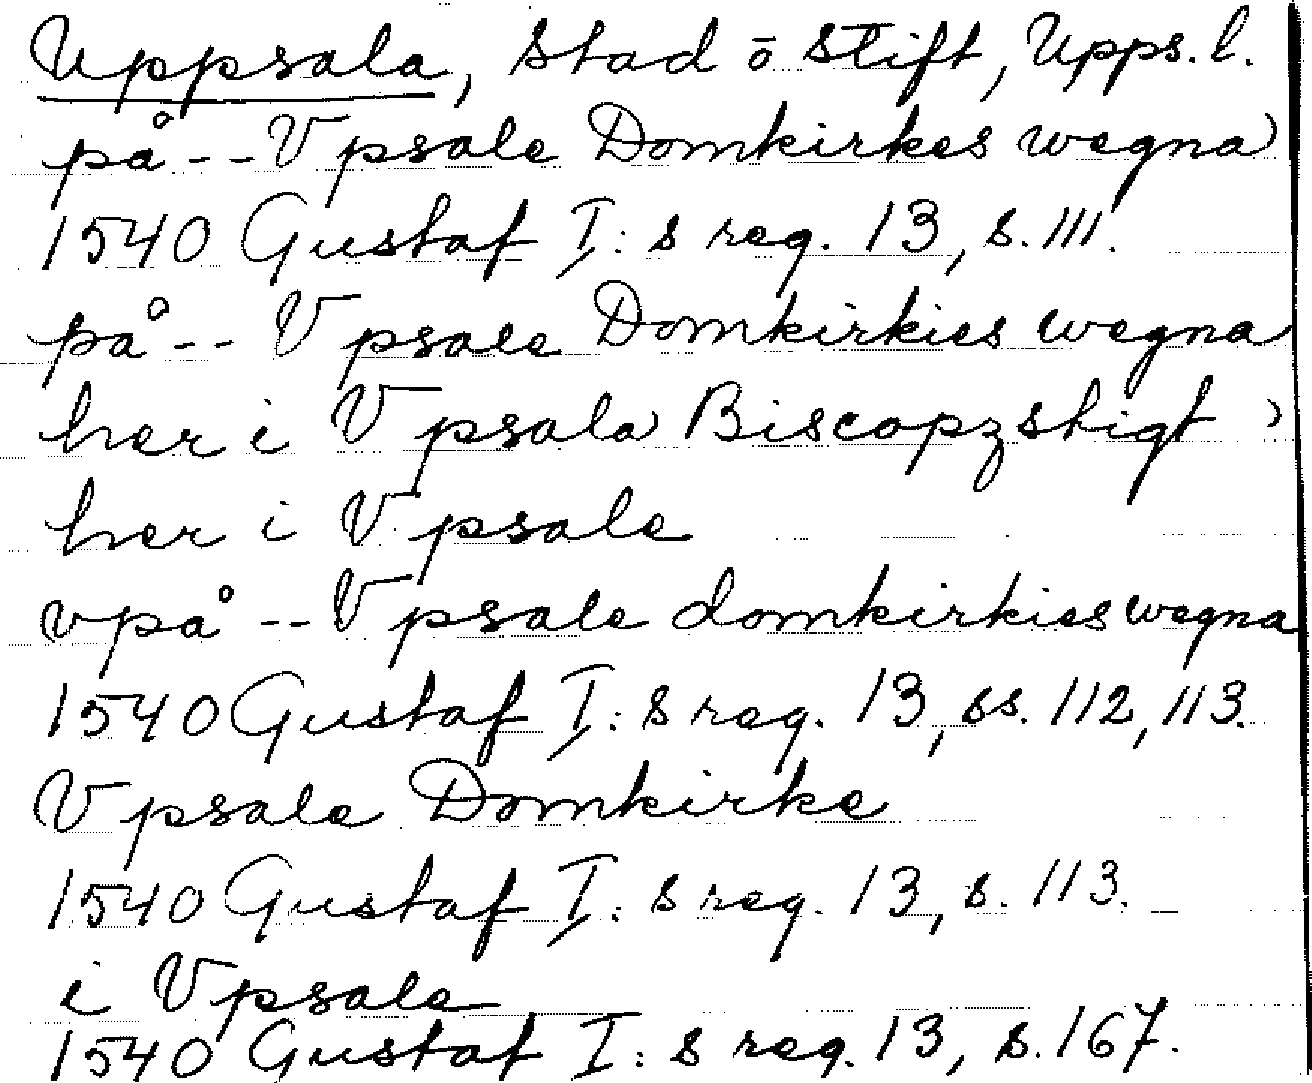 Uppsala, stad ō stift, Upps. l.
på -- Vpsale Domkirkes wegna
1540 Gustaf I:s reg. 13, s. 111.
på -- Vpsale Domkirkies wegna
her i Vpsala Biscopzstigt
her i Vpsale
vpå -- Vpsale domkirkies wegna
1540 Gustaf I:s reg. 13, ss. 112, 113.
Vpsale Domkirke
1540 Gustaf I:s reg. 13, s. 113.
i Vpsale
1540 Gustaf I:s reg. 13, s. 167.